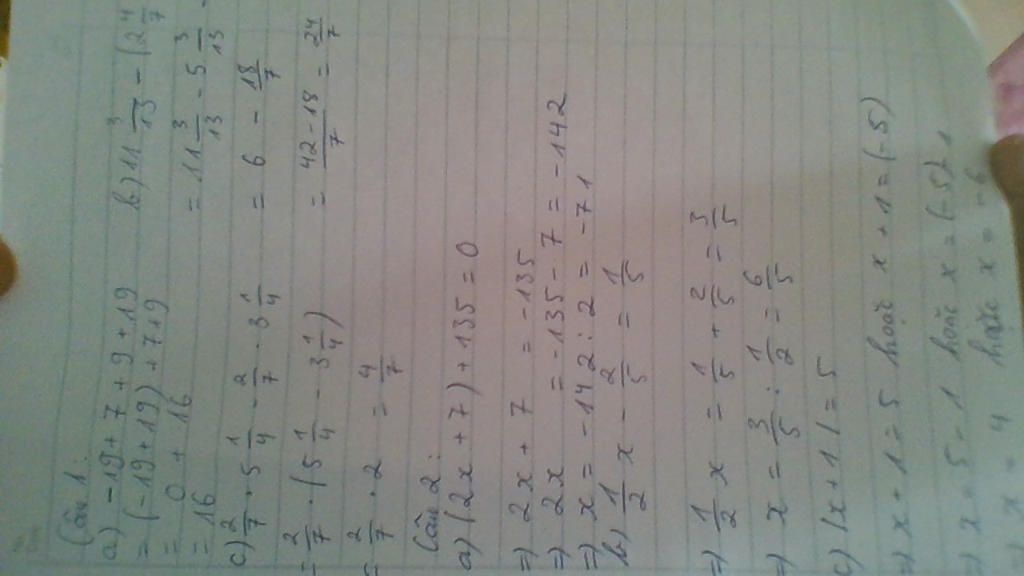 Câu 1:
a) -19 + 7 + 9 + 19
= (-19 + 19) + 7 + 9
= 0 + 16
= 16
b) 11 3/13 - (2 4/7
= 11 3/13 - 5 3/13 -
= 6 - 18/7
= 42 - 18/7 = 24/7
c) 2/7 . 5 1/4 - 2/7 . 3 1/4
= 2/7 . (5 1/4 - 3 1/4)
= 2/7 . 2 = 4/7
Câu 2:
a) (2x + 7) + 135 = 0
=> 2x + 7 = -135
=> 2x = -135 - 7 = -142
=> x = -142 : 2 = -71
b) 1/2 x - 2/5 = 1/5
=> 1/2 x = 1/5 + 2/5 = 3/5
=> x = 3/5 : 1/2 = 6/5
c) |x + 1| = 5
=> x + 1 = 5 hoặc x + 1 = (-5)
=> x = 5 - 1 hoặc x = (-5) - 1
=> x = 4 hoặc x = -6